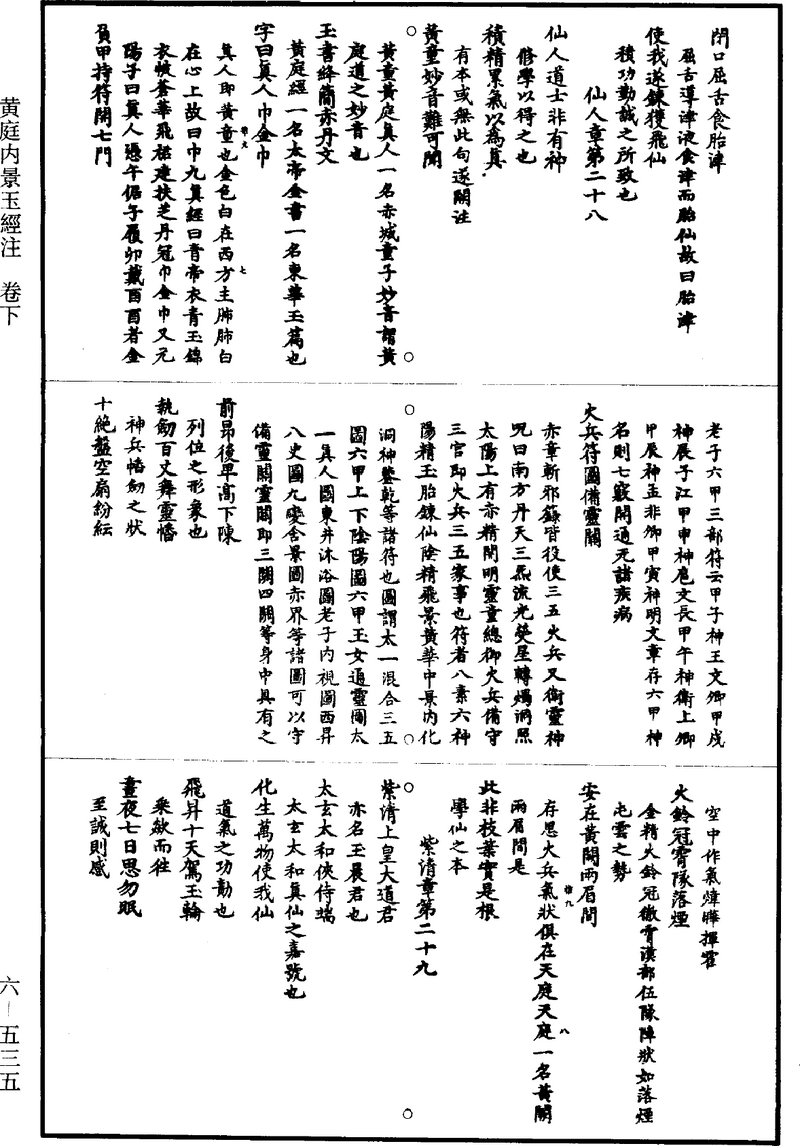 黄庭内景玉經注　卷下
六—五三五
閉口屈舌食胎津
屈舌導津液食津而胎仙故曰胎津
使我遂鍊獲飛仙
積功勤誠之所致也
仙人章第二十八
仙人道士非有神
修學以得之也
積精累氣以為真
有本或無此句遂闕注
黄童妙音難可聞
黄童黄庭真人一名赤城童子妙音謂黄
庭道之妙音也
玉書絳簡赤丹文
黄庭經一名太帝金書一名東華玉篇也
字曰真人巾金巾
真人即黄童也金色白在西方主肺肺白
在心上故曰巾九真經曰青帝衣青玉錦
衣帔蒼華飛裙建扶芝丹冠巾金巾又元
陽子曰真人憑午倨子履卯戴酉酉者金
負甲持符開七門
老子六甲三部符云甲子神王文卿甲戌
神展子江甲申神扈文長甲午神衛上卿
甲辰神孟非卿甲寅神明文章存六甲神
名則七竅開通无諸疾病
火兵符圖備靈關
赤章斬邪籙皆役使三五火兵又衛靈神
咒曰南方丹天三炁流光熒星轉燭洞照
太陽上有赤精開明靈童總御火兵備守
三宮即火兵三五家事也符者八素六神
陽精玉胎鍊仙陰精飛景黄華中景内化
洞神鑒乾等諸符也圖謂太一混合三五
圖六甲上下陰陽圖六甲玉女通靈圖太
一真人圖東井沐浴圖老子内視圖西昇
八史圖九變含景圖赤界等諸圖可以守
備靈關靈關即三關四關等身中具有之
前昂後卑高下陳
列位之形象也
執劒百丈舞靈幡
神兵幡劒之狀
十絶盤空扇紛紜
空中作氣煒曄揮霍
火鈴冠霄隊落煙
金精火鈴冠徹霄漢部伍隊陣狀如落煙
屯雲之勢
安在黄闕兩眉間
存思火兵氣狀俱在天庭天庭一名黄闕
兩眉間是
此非枝葉實是根
學仙之本
紫清章第二十九
紫清上皇大道君
亦名玉晨君也
太玄太和俠侍端
太玄太和真仙之嘉號也
化生萬物使我仙
道氣之功勤也
飛昇十天駕玉輪
乘歘而徃
晝夜七日思勿眠
至誠則感